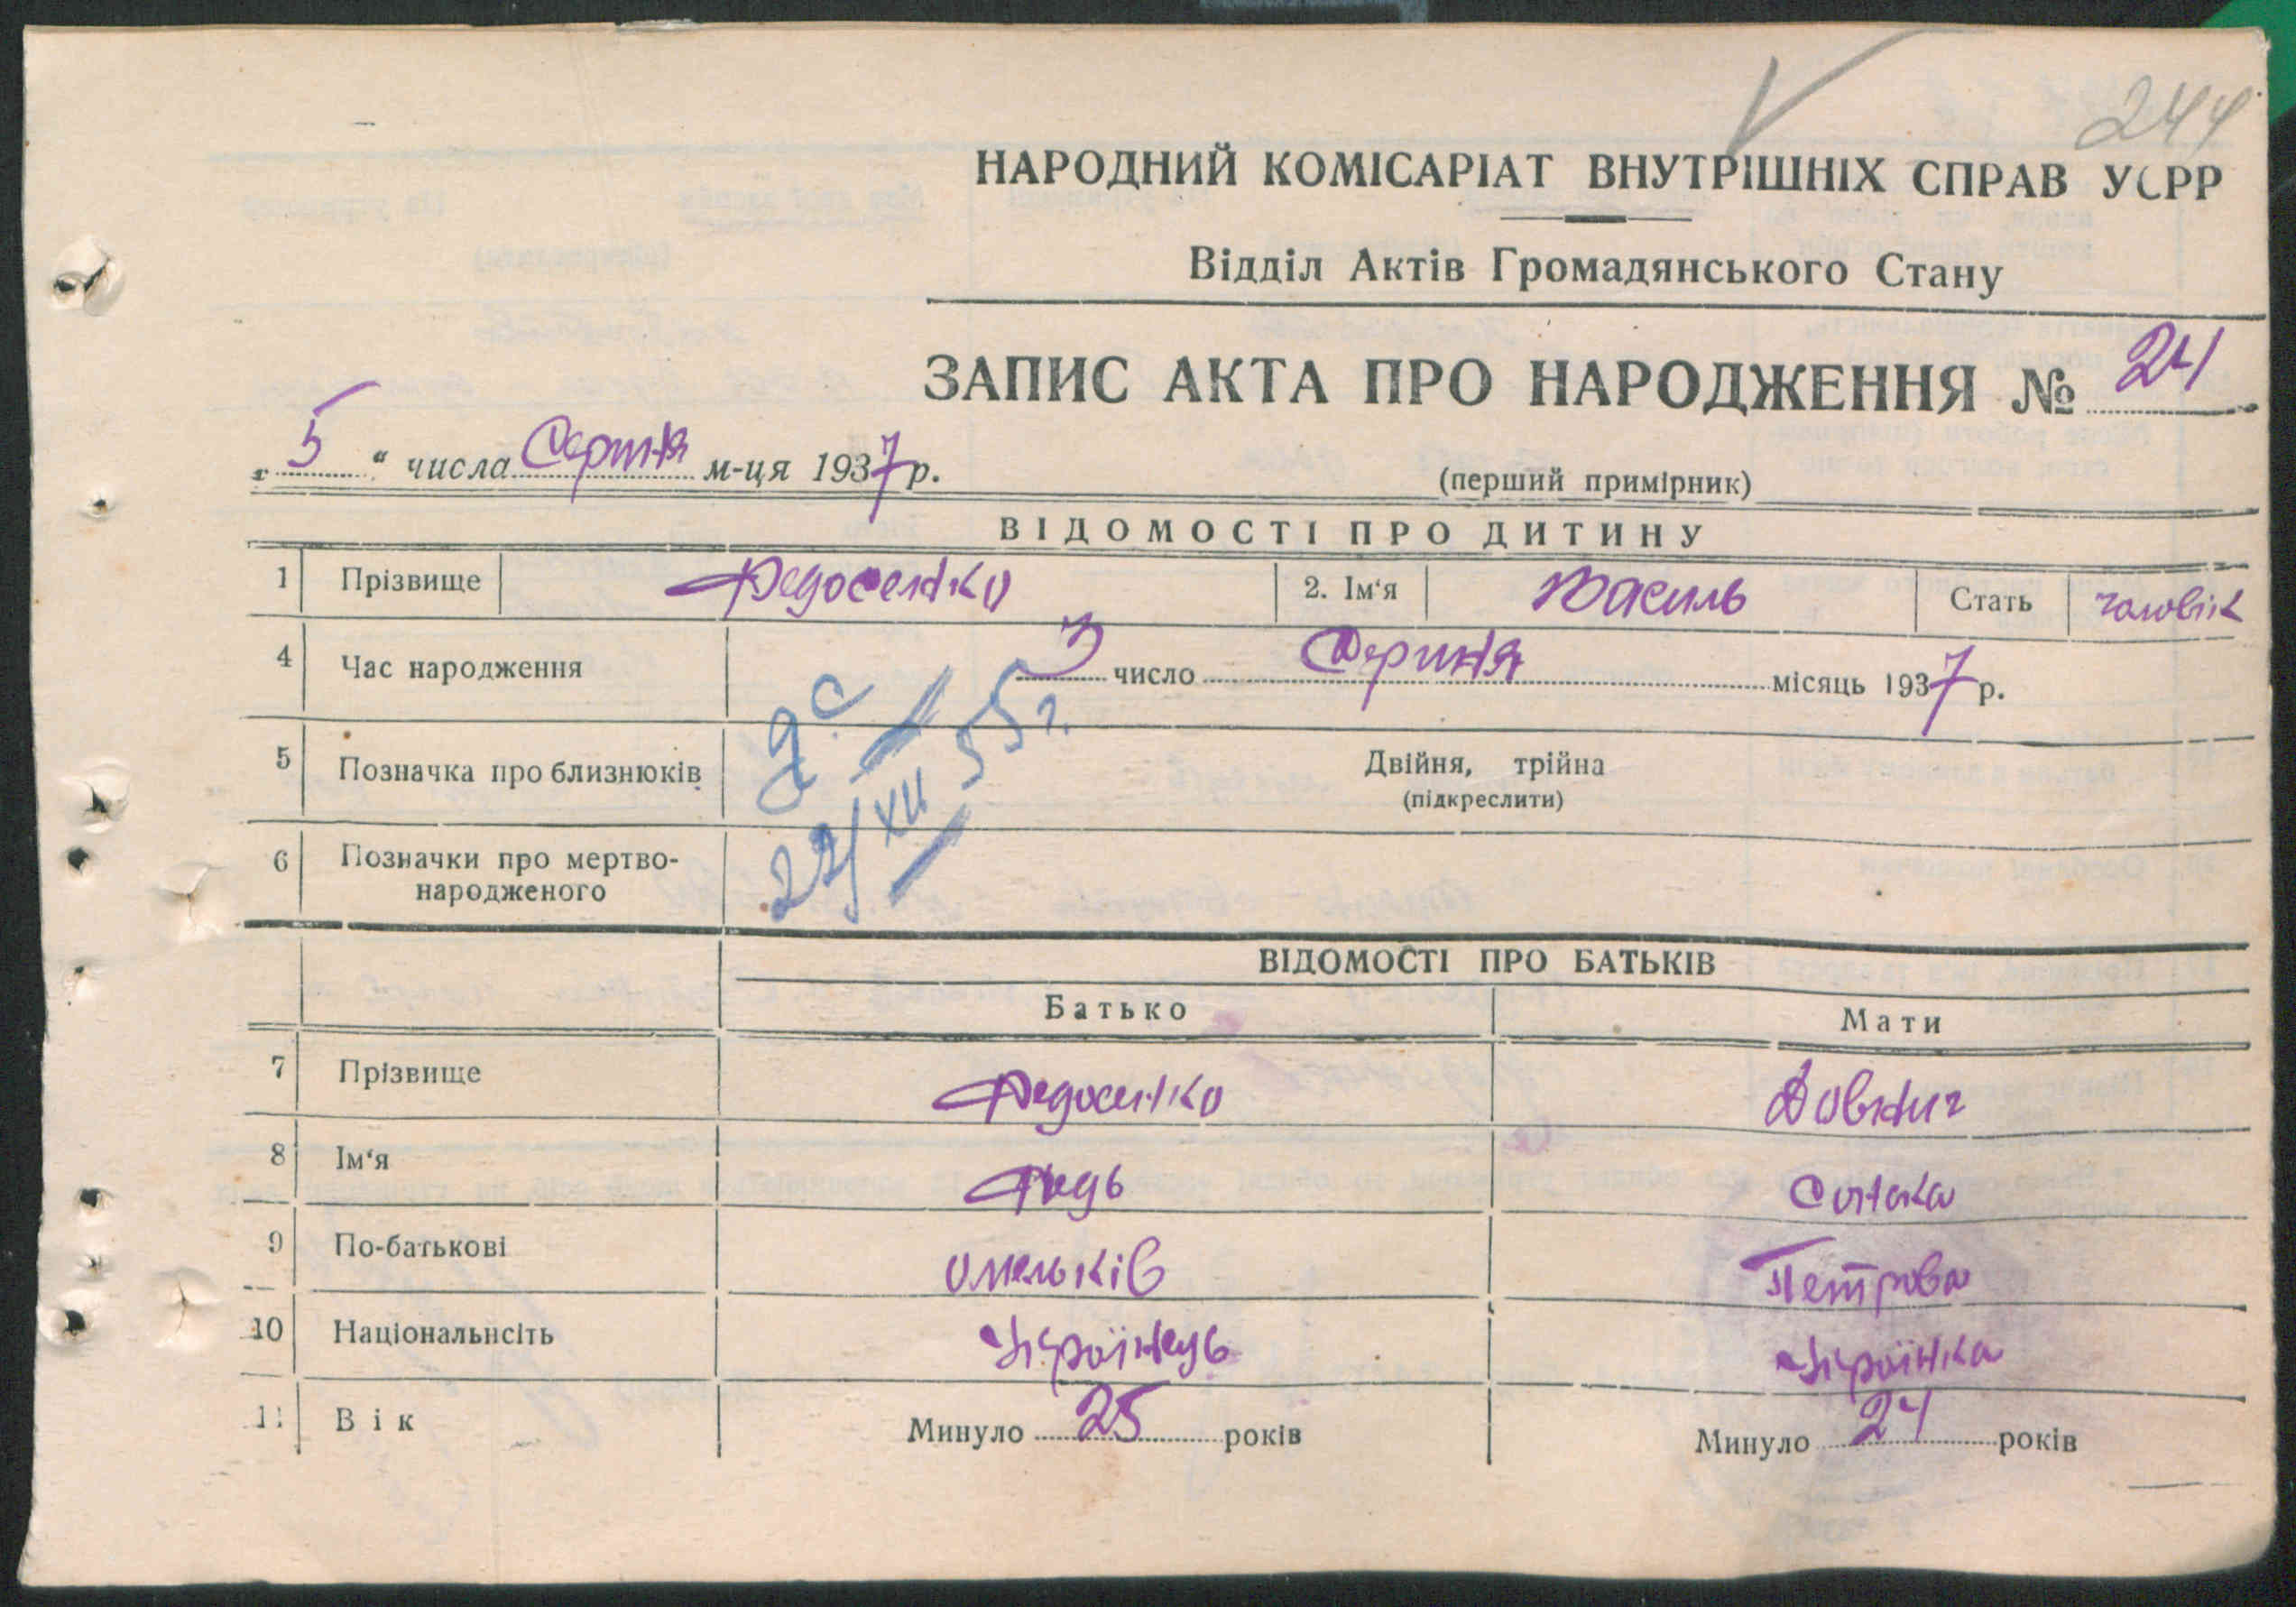 244
НАРОДНИЙ КОМІСАРІАТ ВНУТРІШНІХ СПРАВ УСРР
Відділ Актів Громадянського Стану
ЗАПИС АКТА ПРО НАРОДЖЕННЯ № 24
„5“ числа Серпня м-ця 1937 р.
(перший примірник)
ВІДОМОСТІ ПРО ДИТИНУ
1 Прізвище Федосенко 2. Ім‘я Василь Стать чоловік
4 Час народження 3 число Серпня місяць 1937 р.
5 Позначка про близнюків Двійня, трійна
(підкреслити)
22/XII 55 г.
6 Позначки про мертво-
народженого
ВІДОМОСТІ ПРО БАТЬКІВ
Батько Мати
7 Прізвище Федосенко Довжик
8 Ім‘я Федь Сонька
9 По-батькові Омельків Петрова
10 Національнсіть Українець Українка
11 Вік Минуло 25 років Минуло 24 років